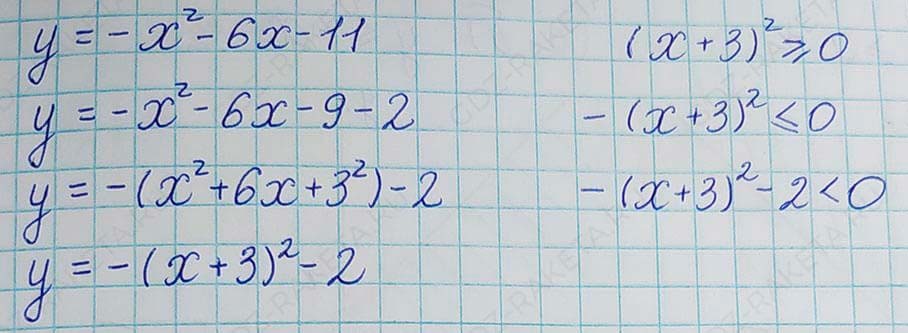 y = -x² - 6x - 11
y = -x² - 6x - 9 - 2
y = -(x² + 6x + 3²) - 2
y = -(x + 3)² - 2
(x + 3)² ⩾ 0
-(x + 3)² ⩽ 0
-(x + 3)² - 2 < 0